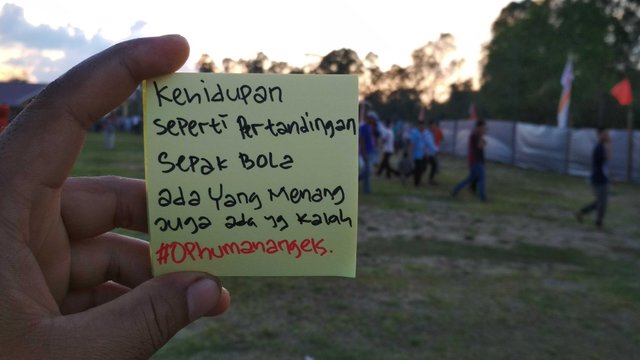 Kehidupan
seperti Pertandingan
sepak Bola
ada Yang Menang
Juga ada yg Kalah
#OPhumanangels.